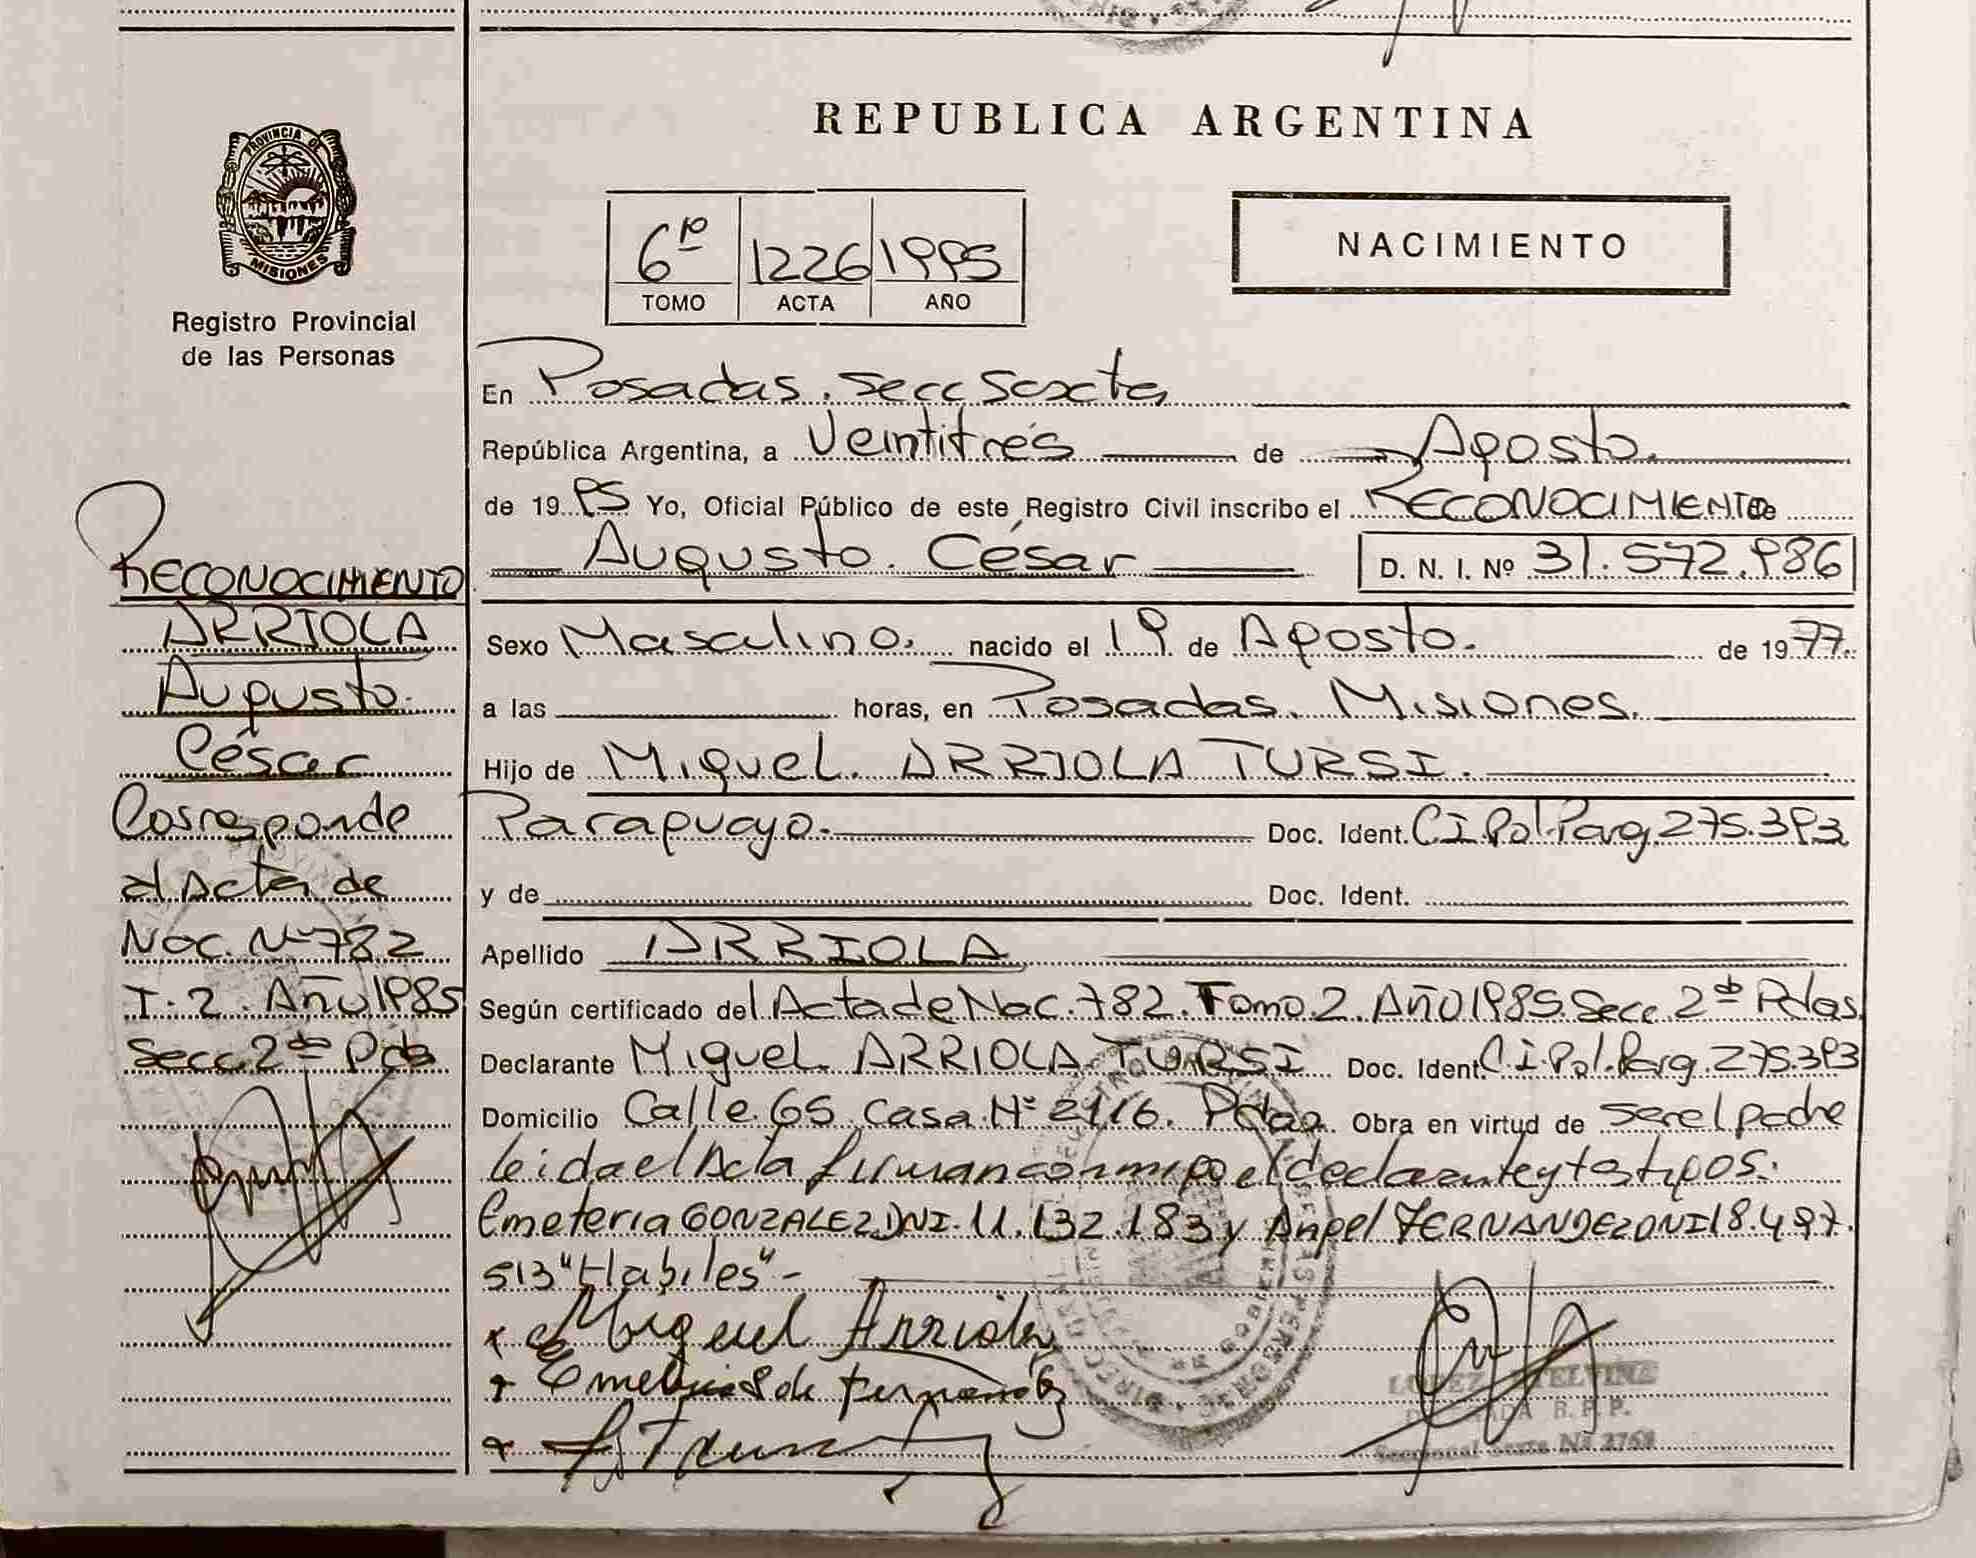 PROVINCIA DE
MISIONES
Registro Provincial
de las Personas
RECONOCIMIENTO
ARRIOLA
Augusto.
César
Corresponde
al Acta de
Nac. Nº 782
T. 2. Año 1985
Secc. 2da Pdas
REPUBLICA ARGENTINA
6to 1226 1995
TOMO ACTA AÑO
NACIMIENTO
En Posadas. Secc Sexta
República Argentina, a Veintitrés de Agosto.
de 1995 Yo, Oficial Público de este Registro Civil inscribo el RECONOCIMIENTO de
Augusto. César D. N. I. Nº 31.572.986
Sexo Masculino. nacido el 19 de Agosto. de 1977.
a las horas, en Posadas. Misiones.
Hijo de Miguel. ARRIOLA TURSI.
Paraguayo. Doc. Ident. C.I.Pol.Parg.275.393
y de Doc. Ident.
Apellido ARRIOLA
Según certificado del Acta de Nac. 782. Tomo.2. Año 1985. Secc. 2da Pdas.
Declarante Miguel. ARRIOLA TURSI Doc. Ident. C.I.Pol.Parg.275.393
Domicilio Calle.65.Casa.Nº 2116. Pdas. Obra en virtud de ser el padre
leida el Acta firman conmigo el declarante y testigos:
Emeteria GONZALEZ DNI. 11.132.183 y Angel FERNANDEZ DNI 8.497.
513 "Habiles" -
x Miguel Arriola
x Emeteria G de Fernández
x
LOPEZ ETELVINA
DELEGADA R.P.P.
Seccional Sexta Nº 2768